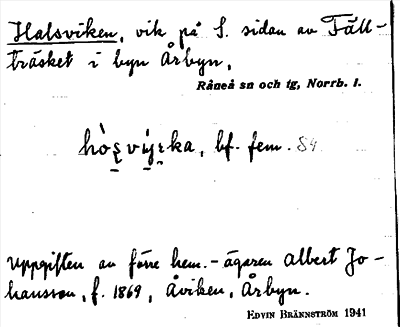 Halsviken, vik på S. sidan av Täll-
träsket i byn Årbyn,
Råneå sn och tg, Norrb. l.
bf. fem. 84
Uppgiften av förre hem.-ägaren Albert Jo-
hansson, f. 1869, Åviken, Årbyn.
EDVIN BRÄNNSTRÖM 1941